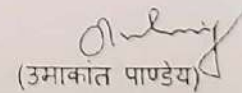 (उमाकांत पाण्डेय)